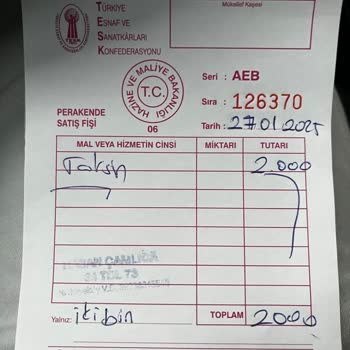 Mükellef Kaşesi
TÜRKİYE
ESNAF VE
SANATKÂRLARI
KONFEDERASYONU
T
E
S
K
HAZİNE VE MALİYE BAKANLIĞI
T.C.
Seri : AEB
Sıra : 126370
Tarih : 27.01.2025
PERAKENDE
SATIŞ FİŞİ
06
MAL VEYA HİZMETİN CİNSİ MİKTARI TUTARI
Taksi 2.000
34 TDL 73
Yalnız: iki bin TOPLAM 2000